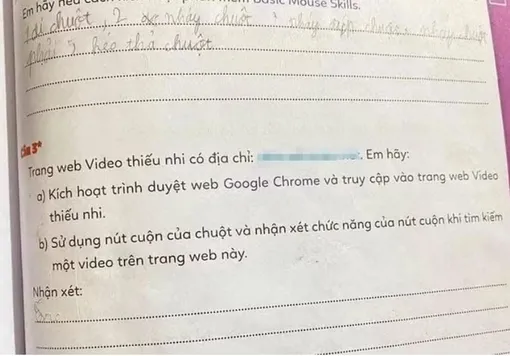 Em hãy nêu Basic Mouse Skills.
di chuột, 2 nháy chuột, nháy chuột
phải, kéo thả chuột
Câu 3*
Trang web Video thiếu nhi có địa chỉ: . Em hãy:
a) Kích hoạt trình duyệt web Google Chrome và truy cập vào trang web Video
thiếu nhi.
b) Sử dụng nút cuộn của chuột và nhận xét chức năng của nút cuộn khi tìm kiếm
một video trên trang web này.
Nhận xét: